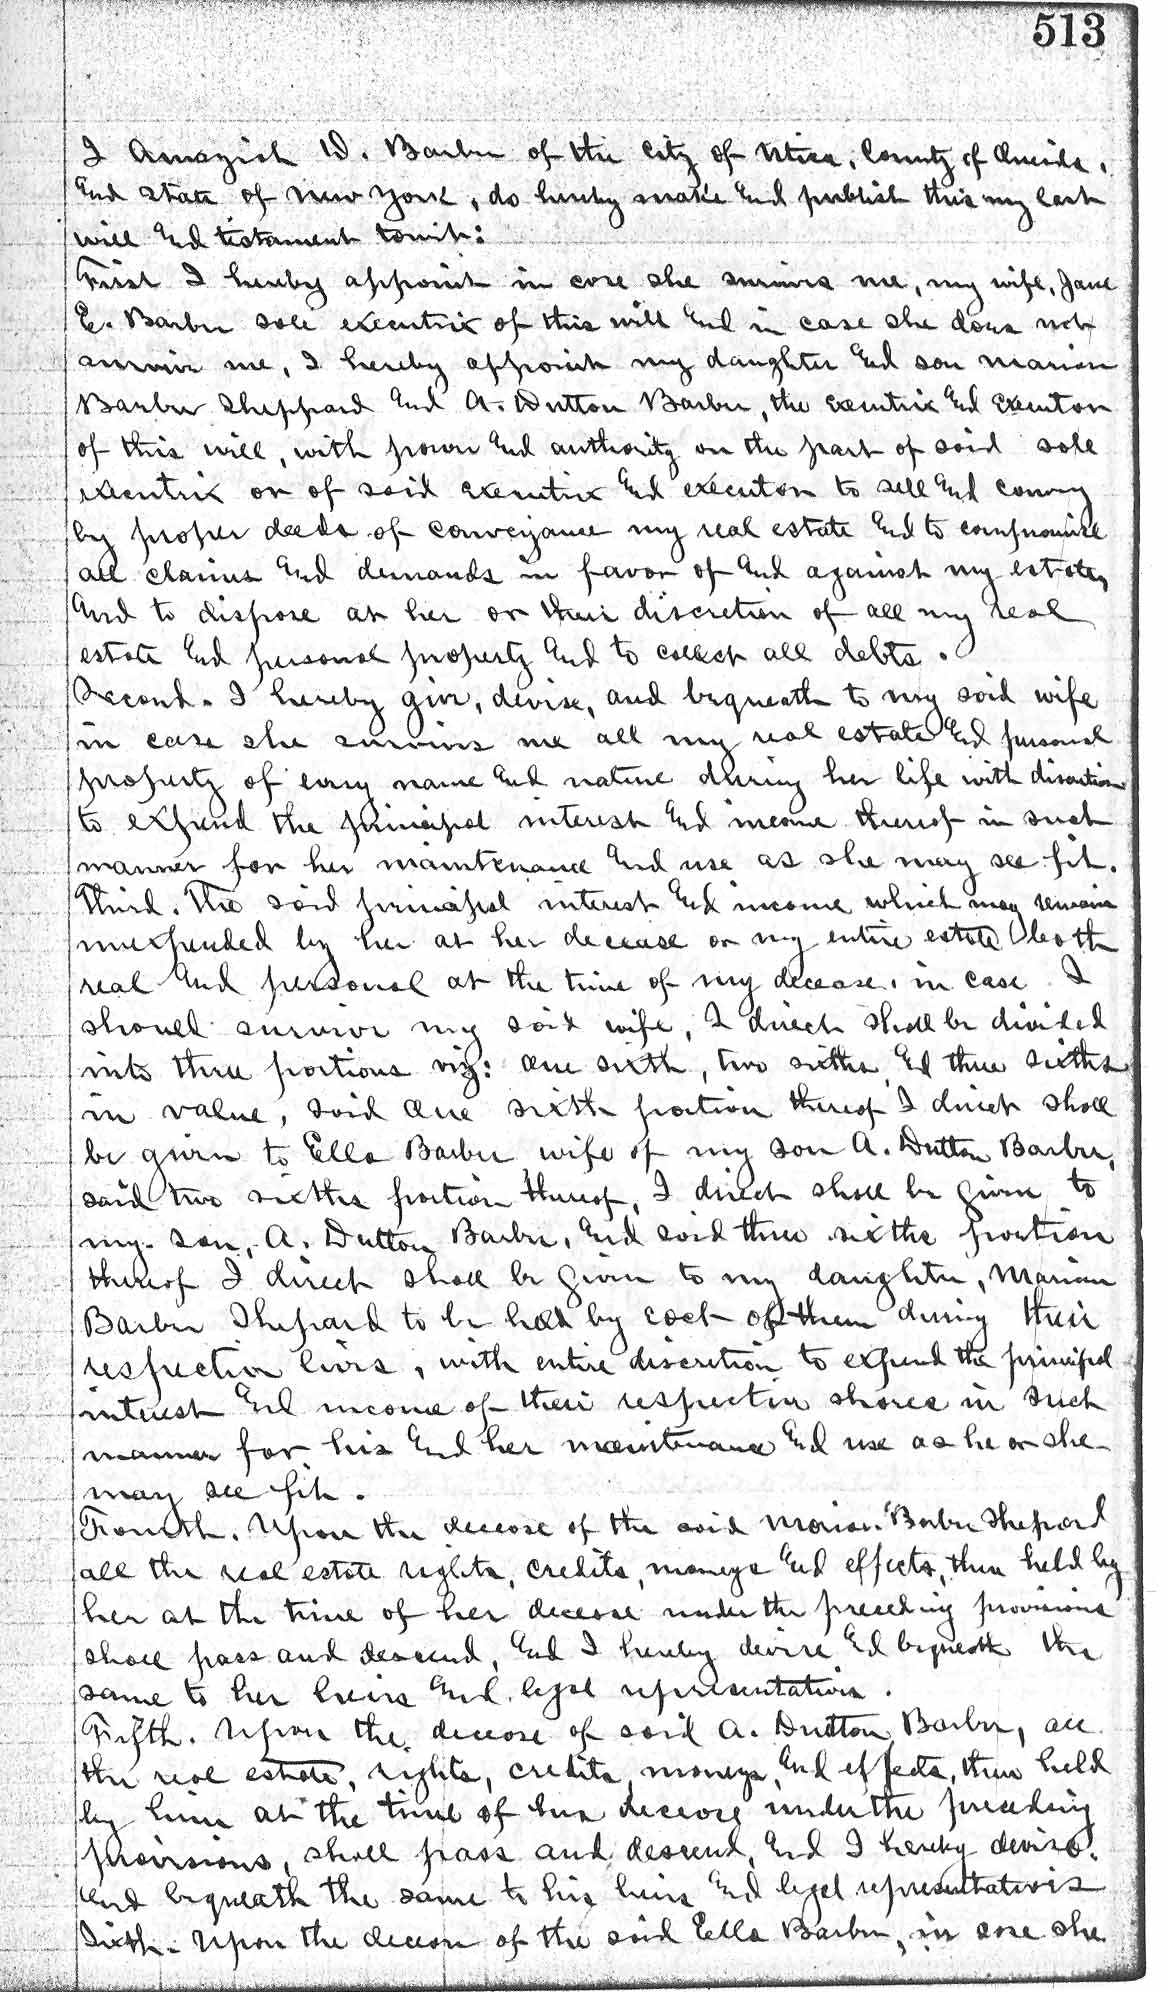 513
I Amaziah D. Barber of the City of Utica, County of Oneida,
and State of New York, do hereby make and publish this my last
will and testament towit:
First I hereby appoint in case she survives me, my wife, Jane
E. Barber sole executrix of this will and in case she does not
survive me, I hereby appoint my daughter and son Marion
Barber Sheppard and A. Dutton Barber, the executrix and executor
of this will, with power and authority on the part of said sole
executrix or of said executrix and executor to sell and convey
by proper deeds of conveyance my real estate and to compromise
all claims and demands in favor of and against my estate,
and to dispose at her or their discretion of all my real
estate and personal property and to collect all debts.
Second. I hereby give, devise, and bequeath to my said wife
in case she survives me all my real estate and personal
property of every name and nature during her life with discretion
to expend the principal interest and income thereof in such
manner for her maintenance and use as she may see fit.
Third. The said principal interest and income which may remain
unexpended by her at her decease or my entire estate both
real and personal at the time of my decease, in case I
should survive my said wife, I direct shall be divided
into three portions viz: one sixth, two sixths, and three sixths
in value, said one sixth portion thereof I direct shall
be given to Ella Barber wife of my son A. Dutton Barber,
said two sixths portion thereof, I direct shall be given to
my son, A. Dutton Barber, and said three sixths portion
thereof I direct shall be given to my daughter, Marian
Barber Shepard to be held by each of them during their
respective lives, with entire discretion to expend the principal
interest and income of their respective shares in such
manner for his and her maintenance and use as he or she
may see fit.
Fourth. Upon the decease of the said Marion Barber Shepard
all the real estate rights, credits, moneys and effects, then held by
her at the time of her decease under the preceding provisions
shall pass and descend, and I hereby devise and bequeath the
same to her heirs and legal representatives.
Fifth. Upon the decease of said A. Dutton Barber, all
the real estate, rights, credits, moneys, and effects, then held
by him at the time of his decease under the preceding
provisions, shall pass and descend, and I hereby devise
and bequeath the same to his heirs and legal representatives
Sixth. Upon the decease of the said Ella Barber, in case she